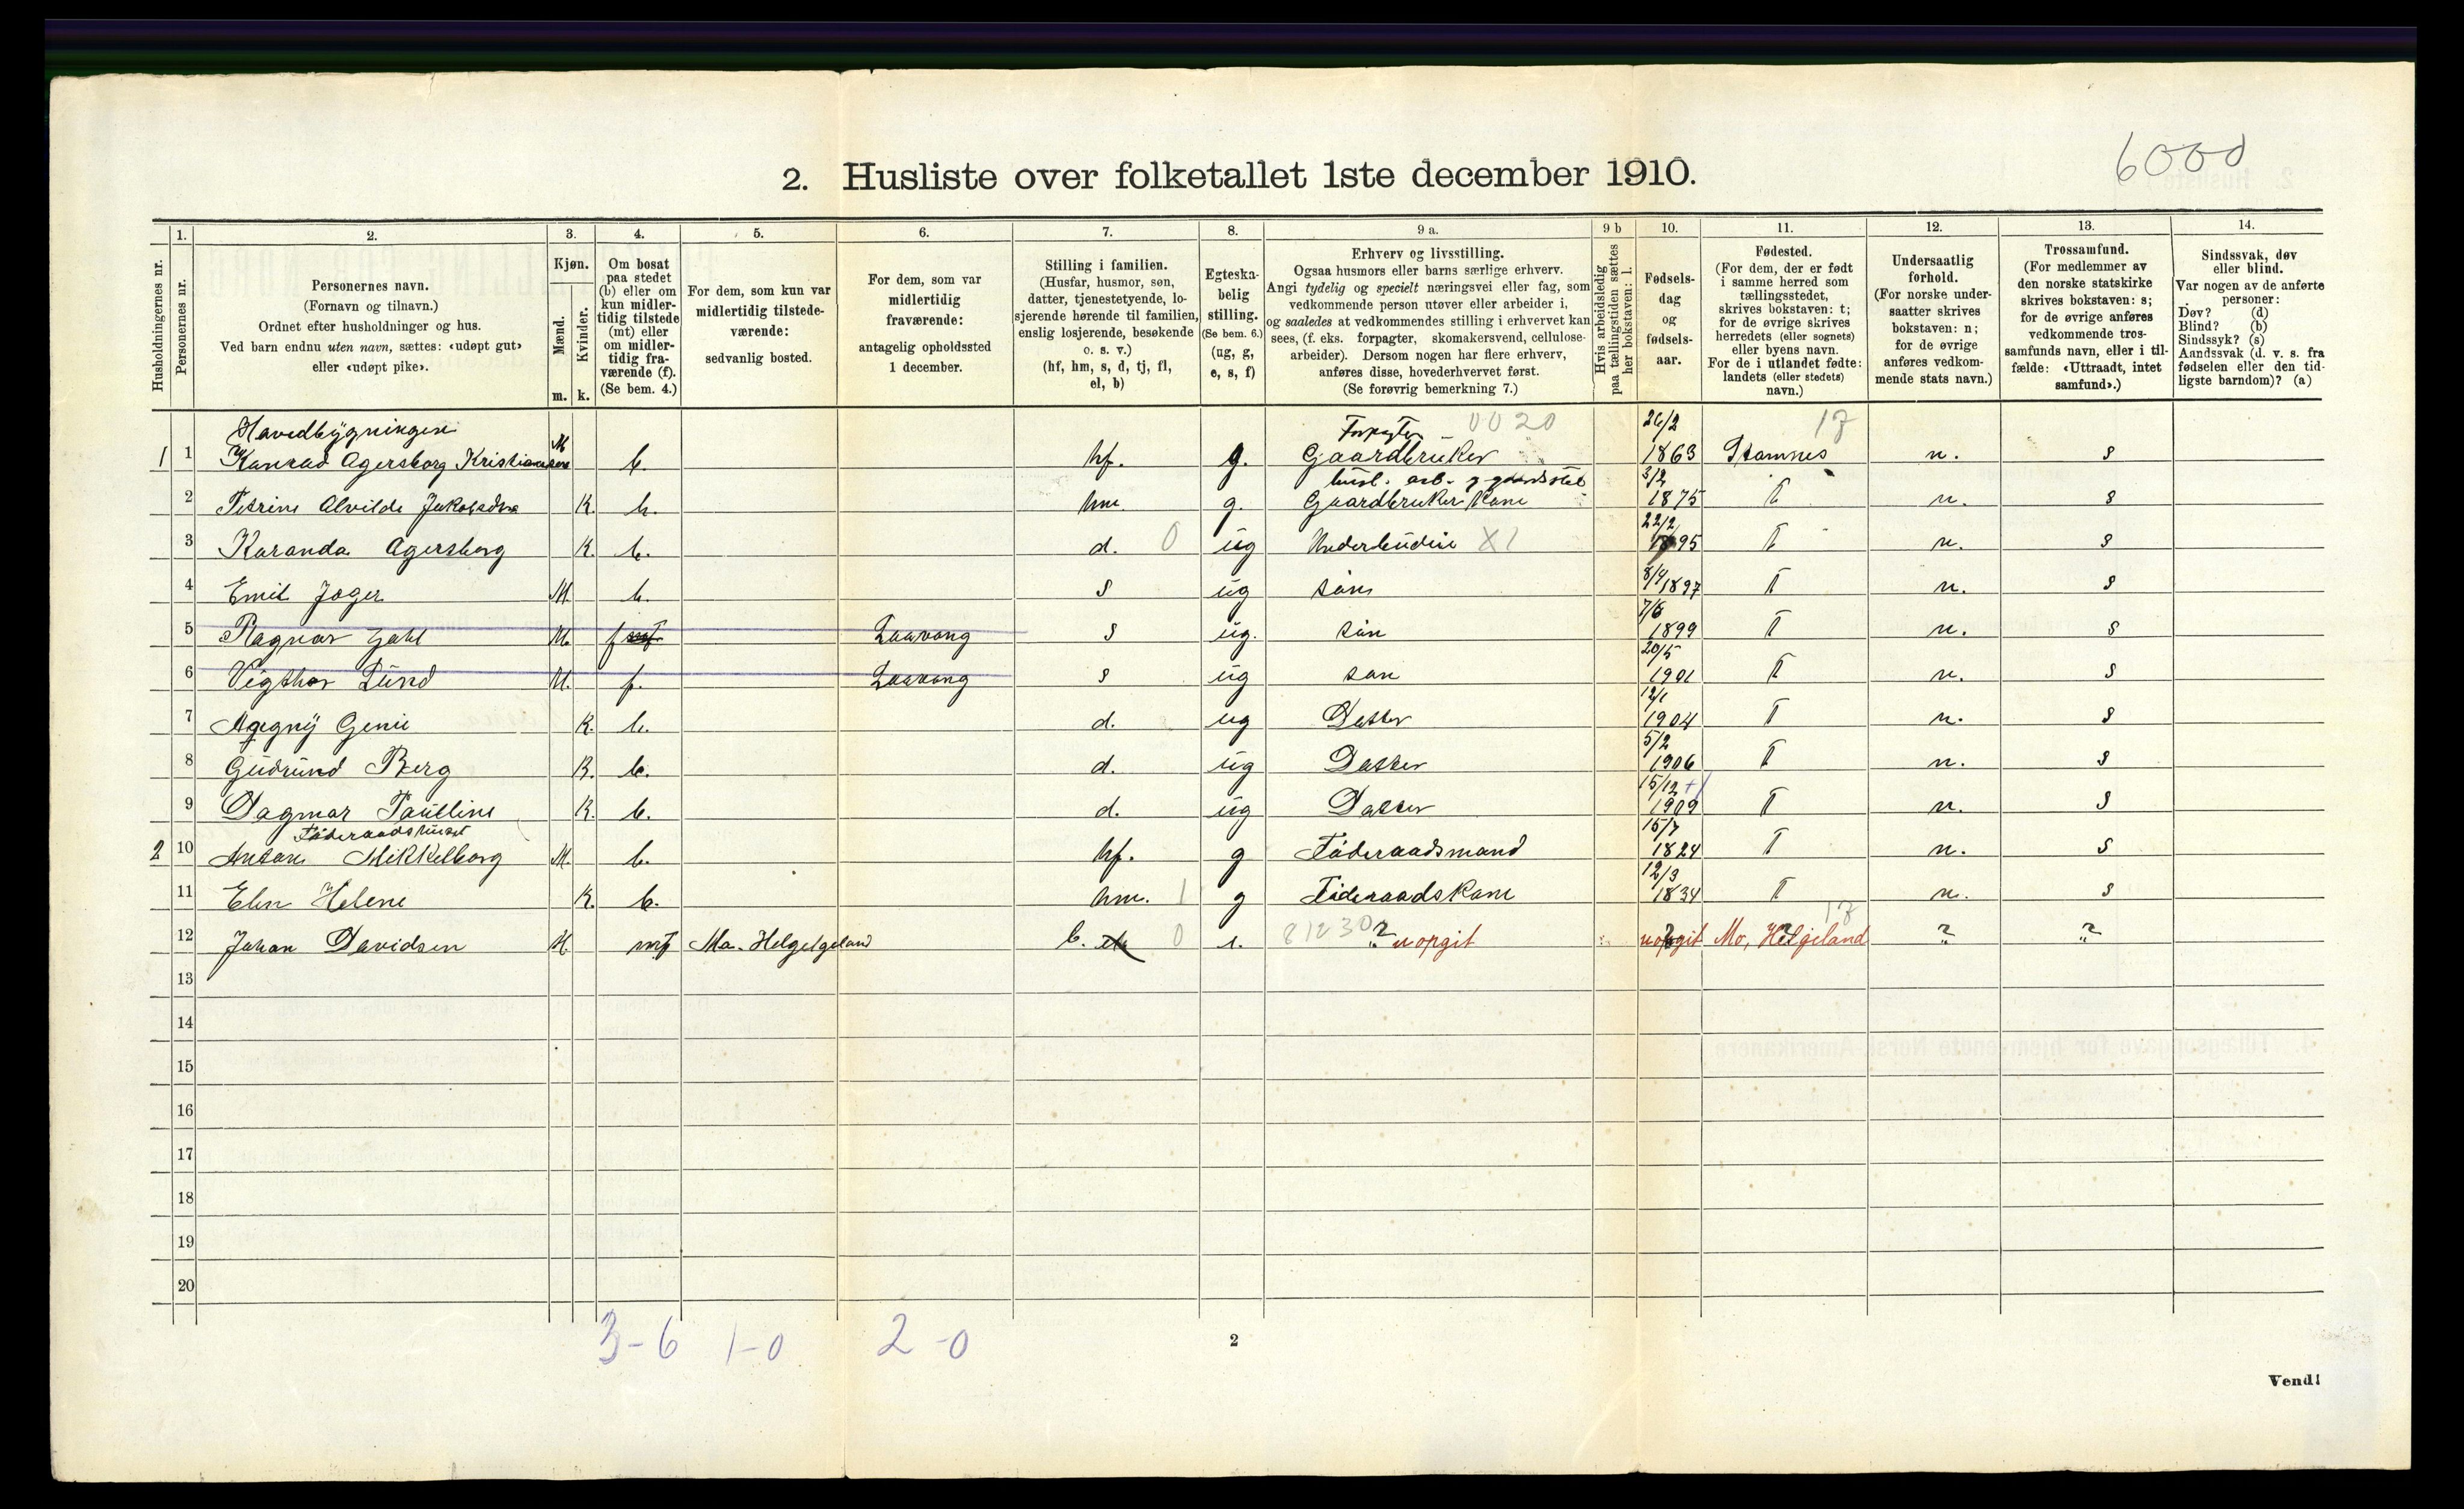 6000
2. Husliste over folketallet 1ste december 1910.
Husholdningernes nr.
1. Personernes nr.
2. Personernes navn.
(Fornavn og tilnavn.)
Ordnet efter husholdninger og hus.
Ved barn endnu uten navn, sættes: «udøpt gut»
eller «udøpt pike».
3. Kjøn.
Mænd. m.
Kvinder. k.
4. Om bosat
paa stedet
(b) eller om
kun midler-
tidig tilstede
(mt) eller
om midler-
tidig fra-
værende (f).
(Se bem. 4.)
5. For dem, som kun var
midlertidig tilstede-
værende:
sedvanlig bosted.
6. For dem, som var
midlertidig
fraværende:
antagelig opholdssted
1 december.
7. Stilling i familien.
(Husfar, husmor, søn,
datter, tjenestetyende, lo-
sjerende hørende til familien,
enslig losjerende, besøkende
o. s. v.)
(hf, hm, s, d, tj, fl,
el, b)
8. Egteska-
belig
stilling.
(Se bem. 6.)
(ug, g,
e, s, f)
9 a. Erhverv og livsstilling.
Ogsaa husmors eller barns særlige erhverv.
Angi tydelig og specielt næringsvei eller fag, som
vedkommende person utøver eller arbeider i,
og saaledes at vedkommendes stilling i erhvervet kan
sees, (f. eks. forpagter, skomakersvend, cellulose-
arbeider). Dersom nogen har flere erhverv,
anføres disse, hovederhvervet først.
(Se forøvrig bemerkning 7.)
9 b Hvis arbeidsledig
paa tællingstiden sættes
her bokstaven: l.
10. Fødsels-
dag
og
fødsels-
aar.
11. Fødested.
(For dem, der er født
i samme herred som
tællingsstedet,
skrives bokstaven: t;
for de øvrige skrives
herredets (eller sognets)
eller byens navn.
For de i utlandet fødte:
landets (eller stedets)
navn.)
12. Undersaatlig
forhold.
(For norske under-
saatter skrives
bokstaven: n;
for de øvrige
anføres vedkom-
mende stats navn.)
13. Trossamfund.
(For medlemmer av
den norske statskirke
skrives bokstaven: s;
for de øvrige anføres
vedkommende tros-
samfunds navn, eller i til-
fælde: «Uttraadt, intet
samfund».)
14. Sindssvak, døv
eller blind.
Var nogen av de anførte
personer:
Døv? (d)
Blind? (b)
Sindssyk? (s)
Aandssvak (d. v. s. fra
fødselen eller den tid-
ligste barndom)? (a)
Havedbygningen Forpagter 0020 26/2 17
1 1 Konrad Agersborg Kristiansen M b. hf. g. Gaardbruker 1863 Stamnes n. s
husl. arb. 3/2
2 Petrine Alvilde Jakobsdtr K. b. hm. g. Gaardbruker Kone 1875 T n. s
22/2
3 Karanda Agersborg K. b. d. 0 ug X1 1895 T n. s
8/4
4 Emil Jager M. b. s ug søn 1897 T n. s
5 Ragnar Jahl M. f Laavong s ug. søn 1899 T n. s
20/5
6 Vigthor Lund M. f. Laavong s ug søn 1901 T n. s
12/1
7 Agegny Genie K. b. d. ug Datter 1904 T n. s
5/2
8 Gudrund Berg K. b. d. ug Datter 1906 T n. s
15/12
9 Dagmar Pauline K. b. d. ug Datter 1909 T n. s
Føderaadshuset 15/7
2 10 Anton Mikkelborg M. b. hf. g Føderaadsmand 1824 T n. s
12/3
11 Elen Helene K. b. hm. 1 g Føderaads Kone 1834 T n. s
17
12 Johan Davidsen M. mt Mo. Helgelgeland b. 0 81230 ? uopgit uopgit Mo, Helgeland ? ?
13
14
15
16
17
18
19
20
3-6 1-0 2-0
2
Vend!